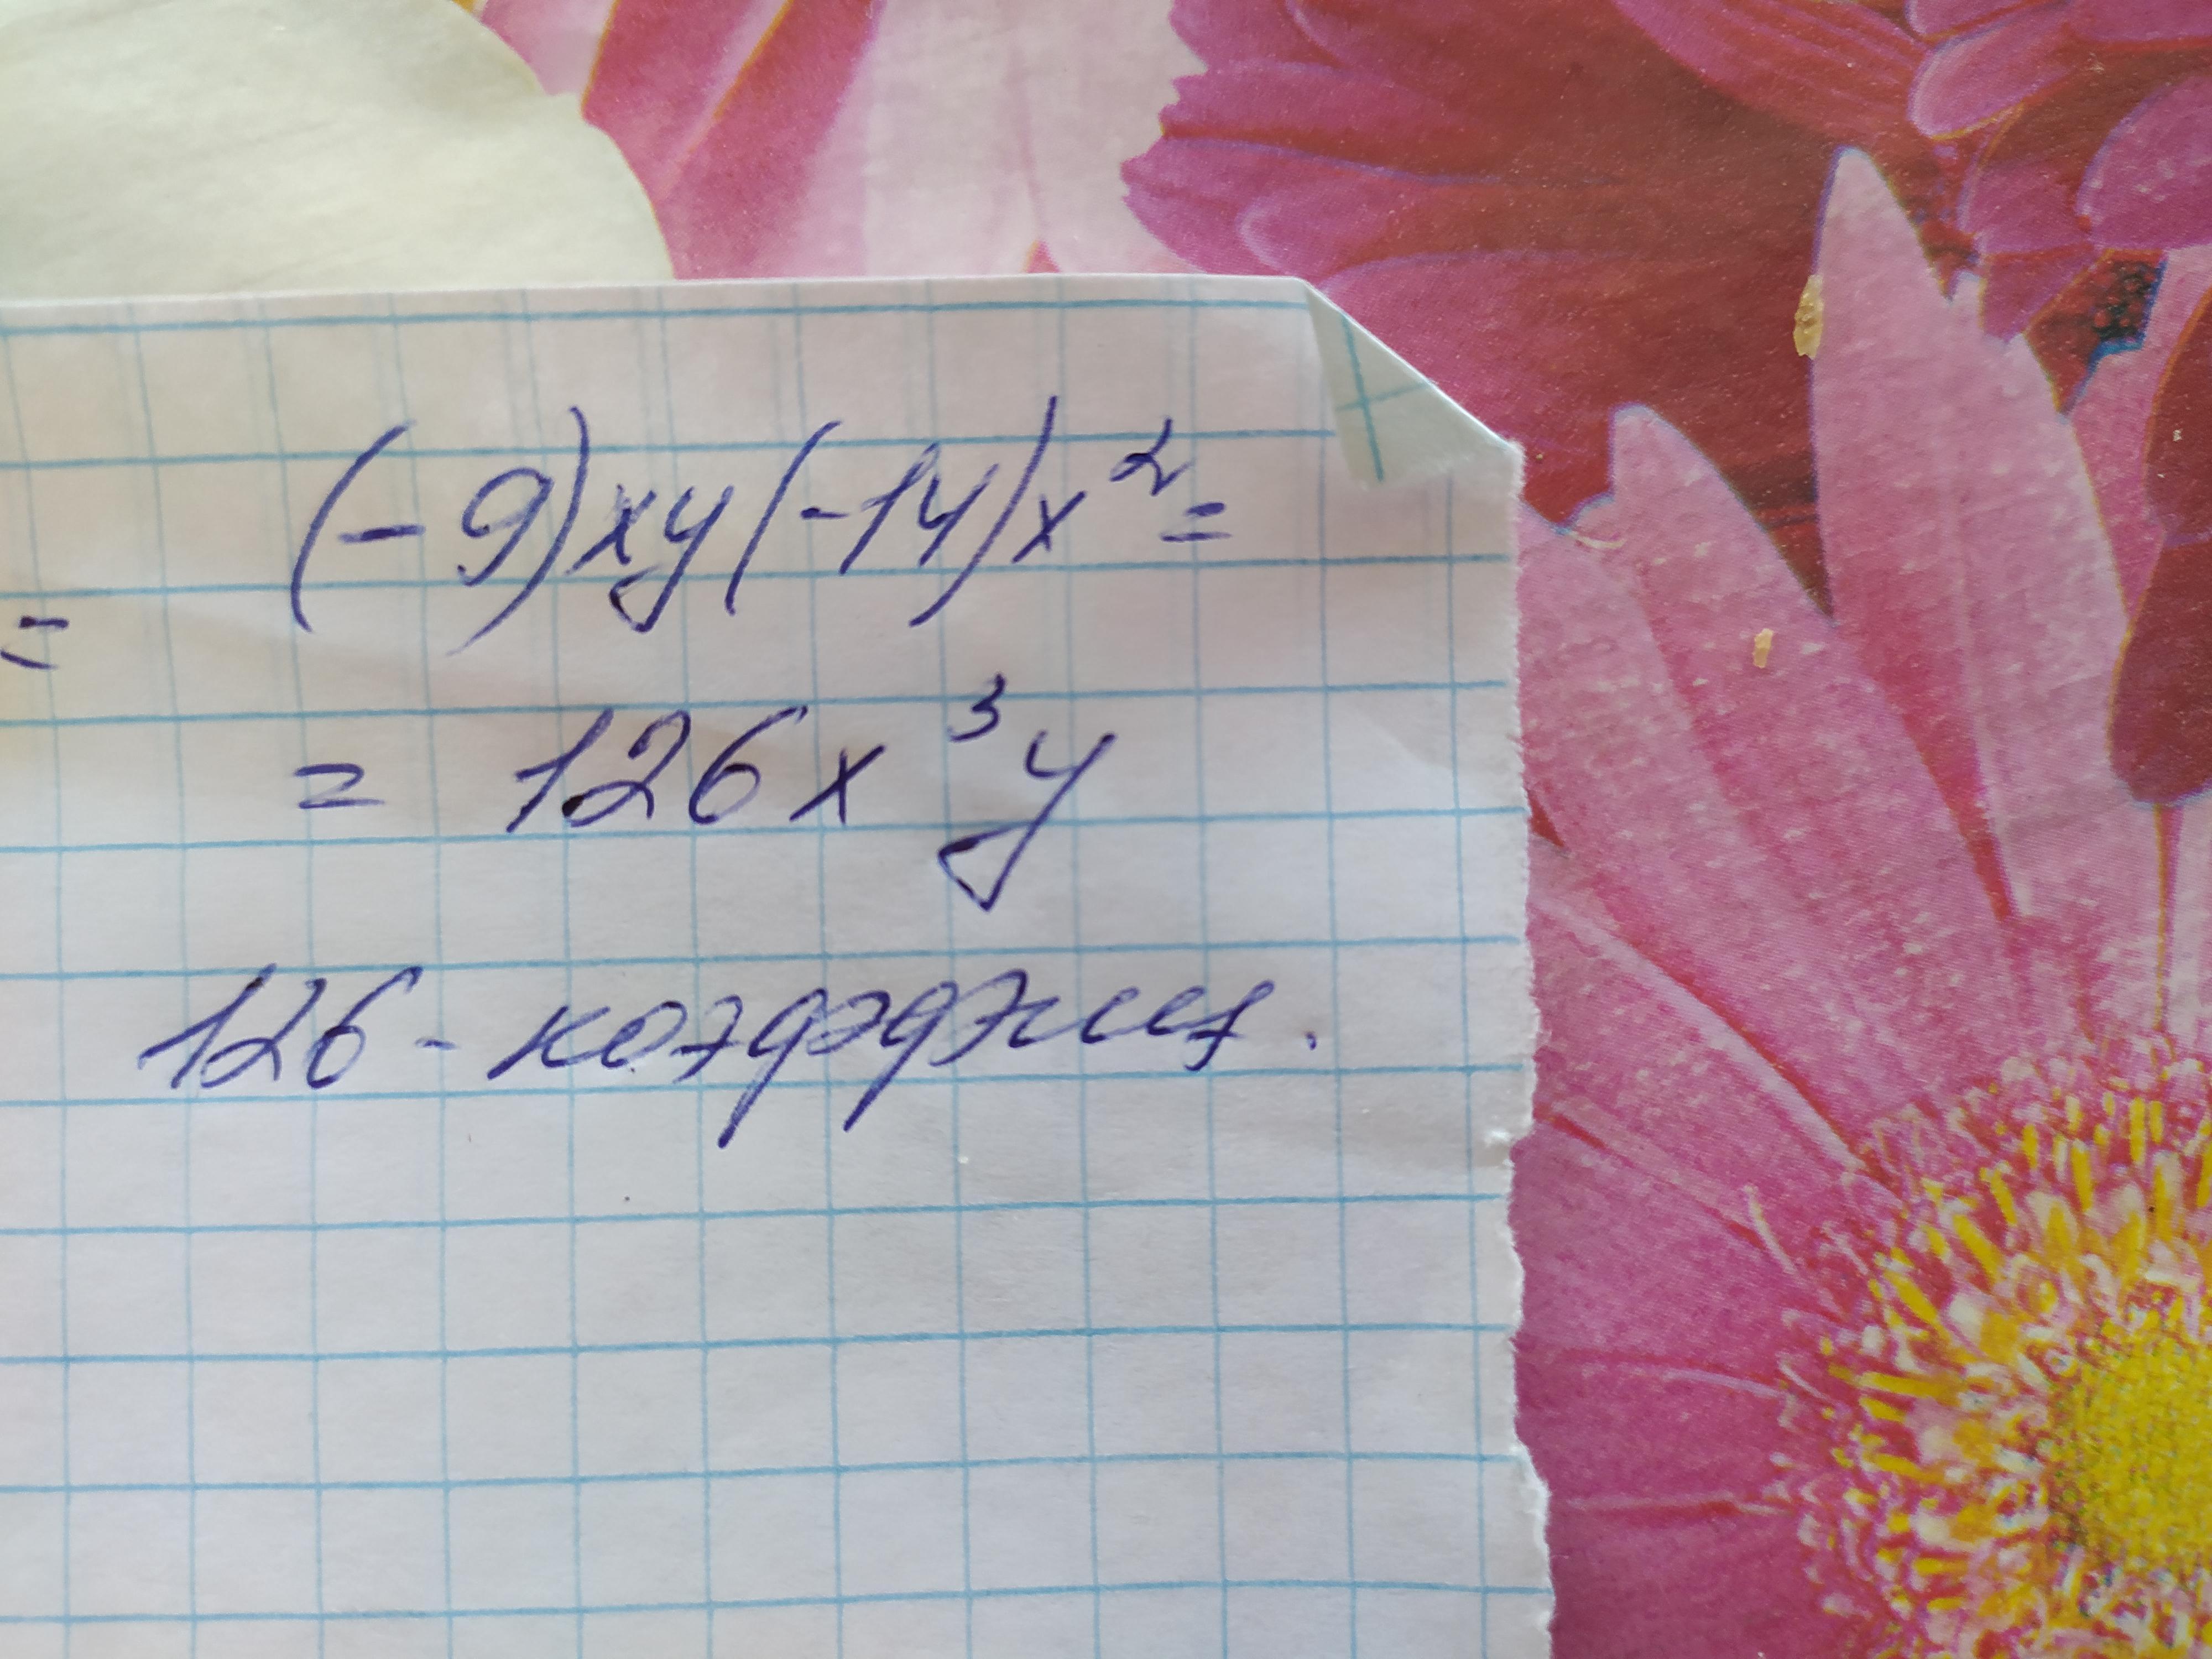 (-9)xy(-14)x²=
=
= 126x³y
126 - коэффициент.